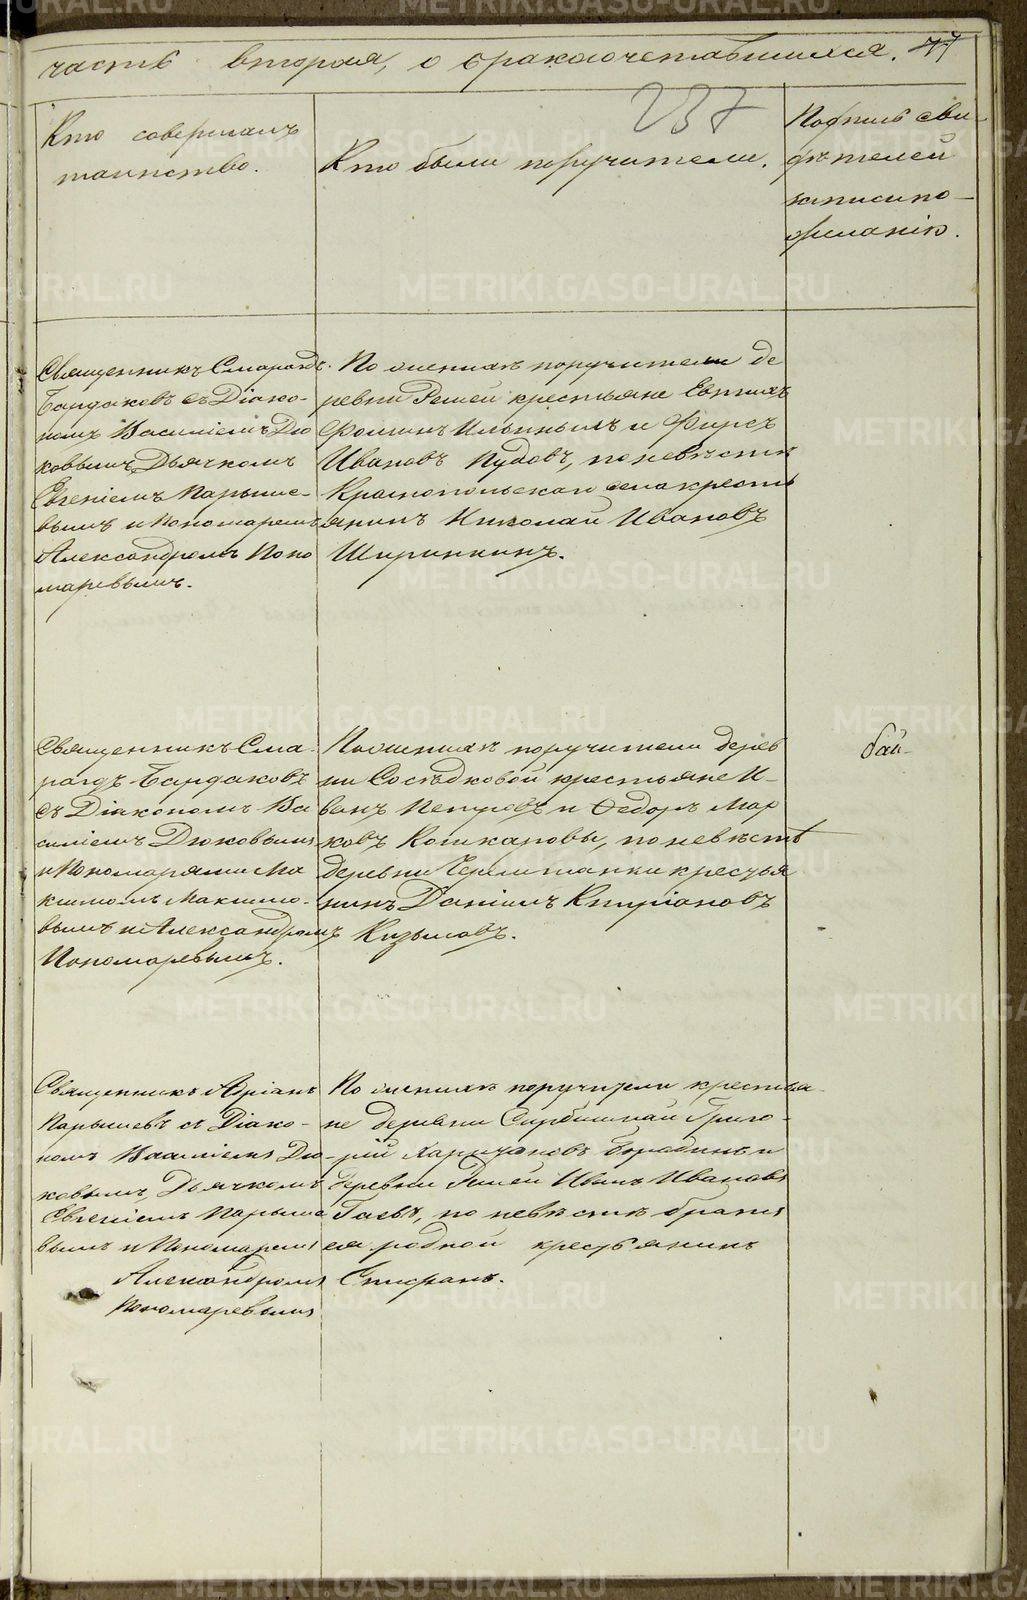 часть вторая, о бракосочетавшихся. 47
237
Кто совершалъ
таинство.
Кто были поручители.
Подпись сви-
дѣтелей
записи по
желанію.
Священникъ Смарагдъ
Бардаковъ съ Діако-
номъ Василіемъ Дю
ковымъ, Дьячкомъ
Евгеніемъ Парыше-
вымъ и Пономаремъ
Александромъ Поно
маревымъ.
По женихѣ поручители де
ревни Решей крестьяне Евтихъ
Фоминъ Ильиныхъ и Фирсъ
Ивановъ Пудовъ, по невѣстѣ
Краснопольскаго села кресть
янинъ Николай Ивановъ
Ширинкинъ.
Священникъ Сма-
рагдъ Бардаковъ
съ Діакономъ Ва
силіемъ Дюковымъ
и Пономарями Ма
ксимомъ Максимо-
вымъ и Александромъ
Пономаревымъ.
По женихѣ поручители дерев
ни Сосѣдковой крестьяне И-
ванъ Петровъ и Федоръ Мар
ковъ Кошкаровы, по невѣстѣ
деревни Черемшанки крестья
нинъ Даніилъ Кипріановъ
Кузьмовъ.
бай-
Священникъ Адріанъ
Парышевъ съ Діако-
номъ Василіемъ Дю-
ковымъ, Дьячкомъ
Евгеніемъ Парыше
вымъ и Пономаремъ
Александромъ
Пономаревымъ
По женихѣ поручители крестья
не деревни Григо-
рій Харитоновъ и
деревни Решей Иванъ Ивановъ
Гаевъ, по невѣстѣ братъ
ея родной крестьянинъ
METRIKI.GASO-URAL.RU